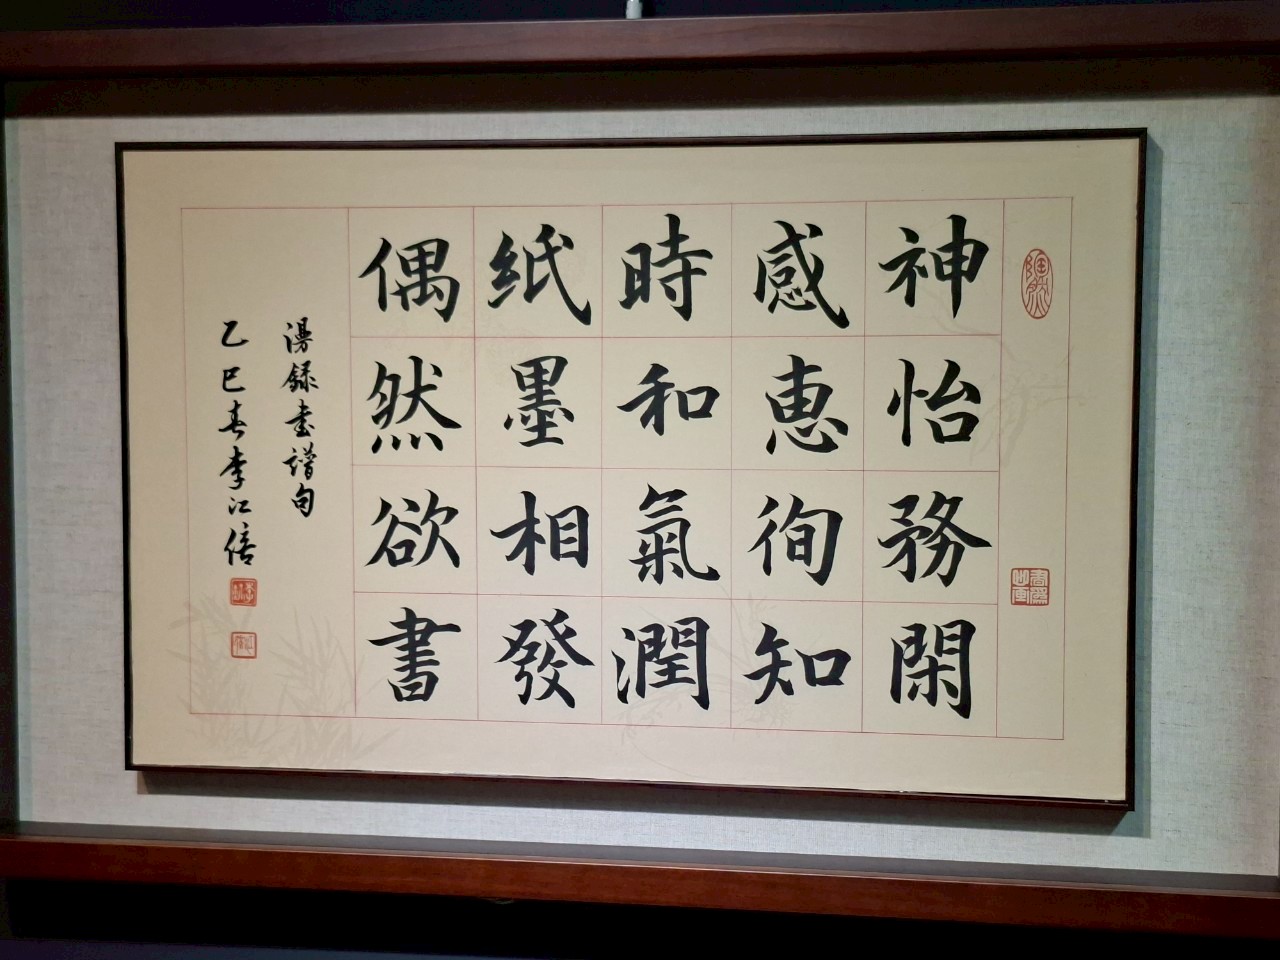 神怡務閑
感惠徇知
時和氣潤
紙墨相發
偶然欲書
漫録書譜句
乙巳春李江倍